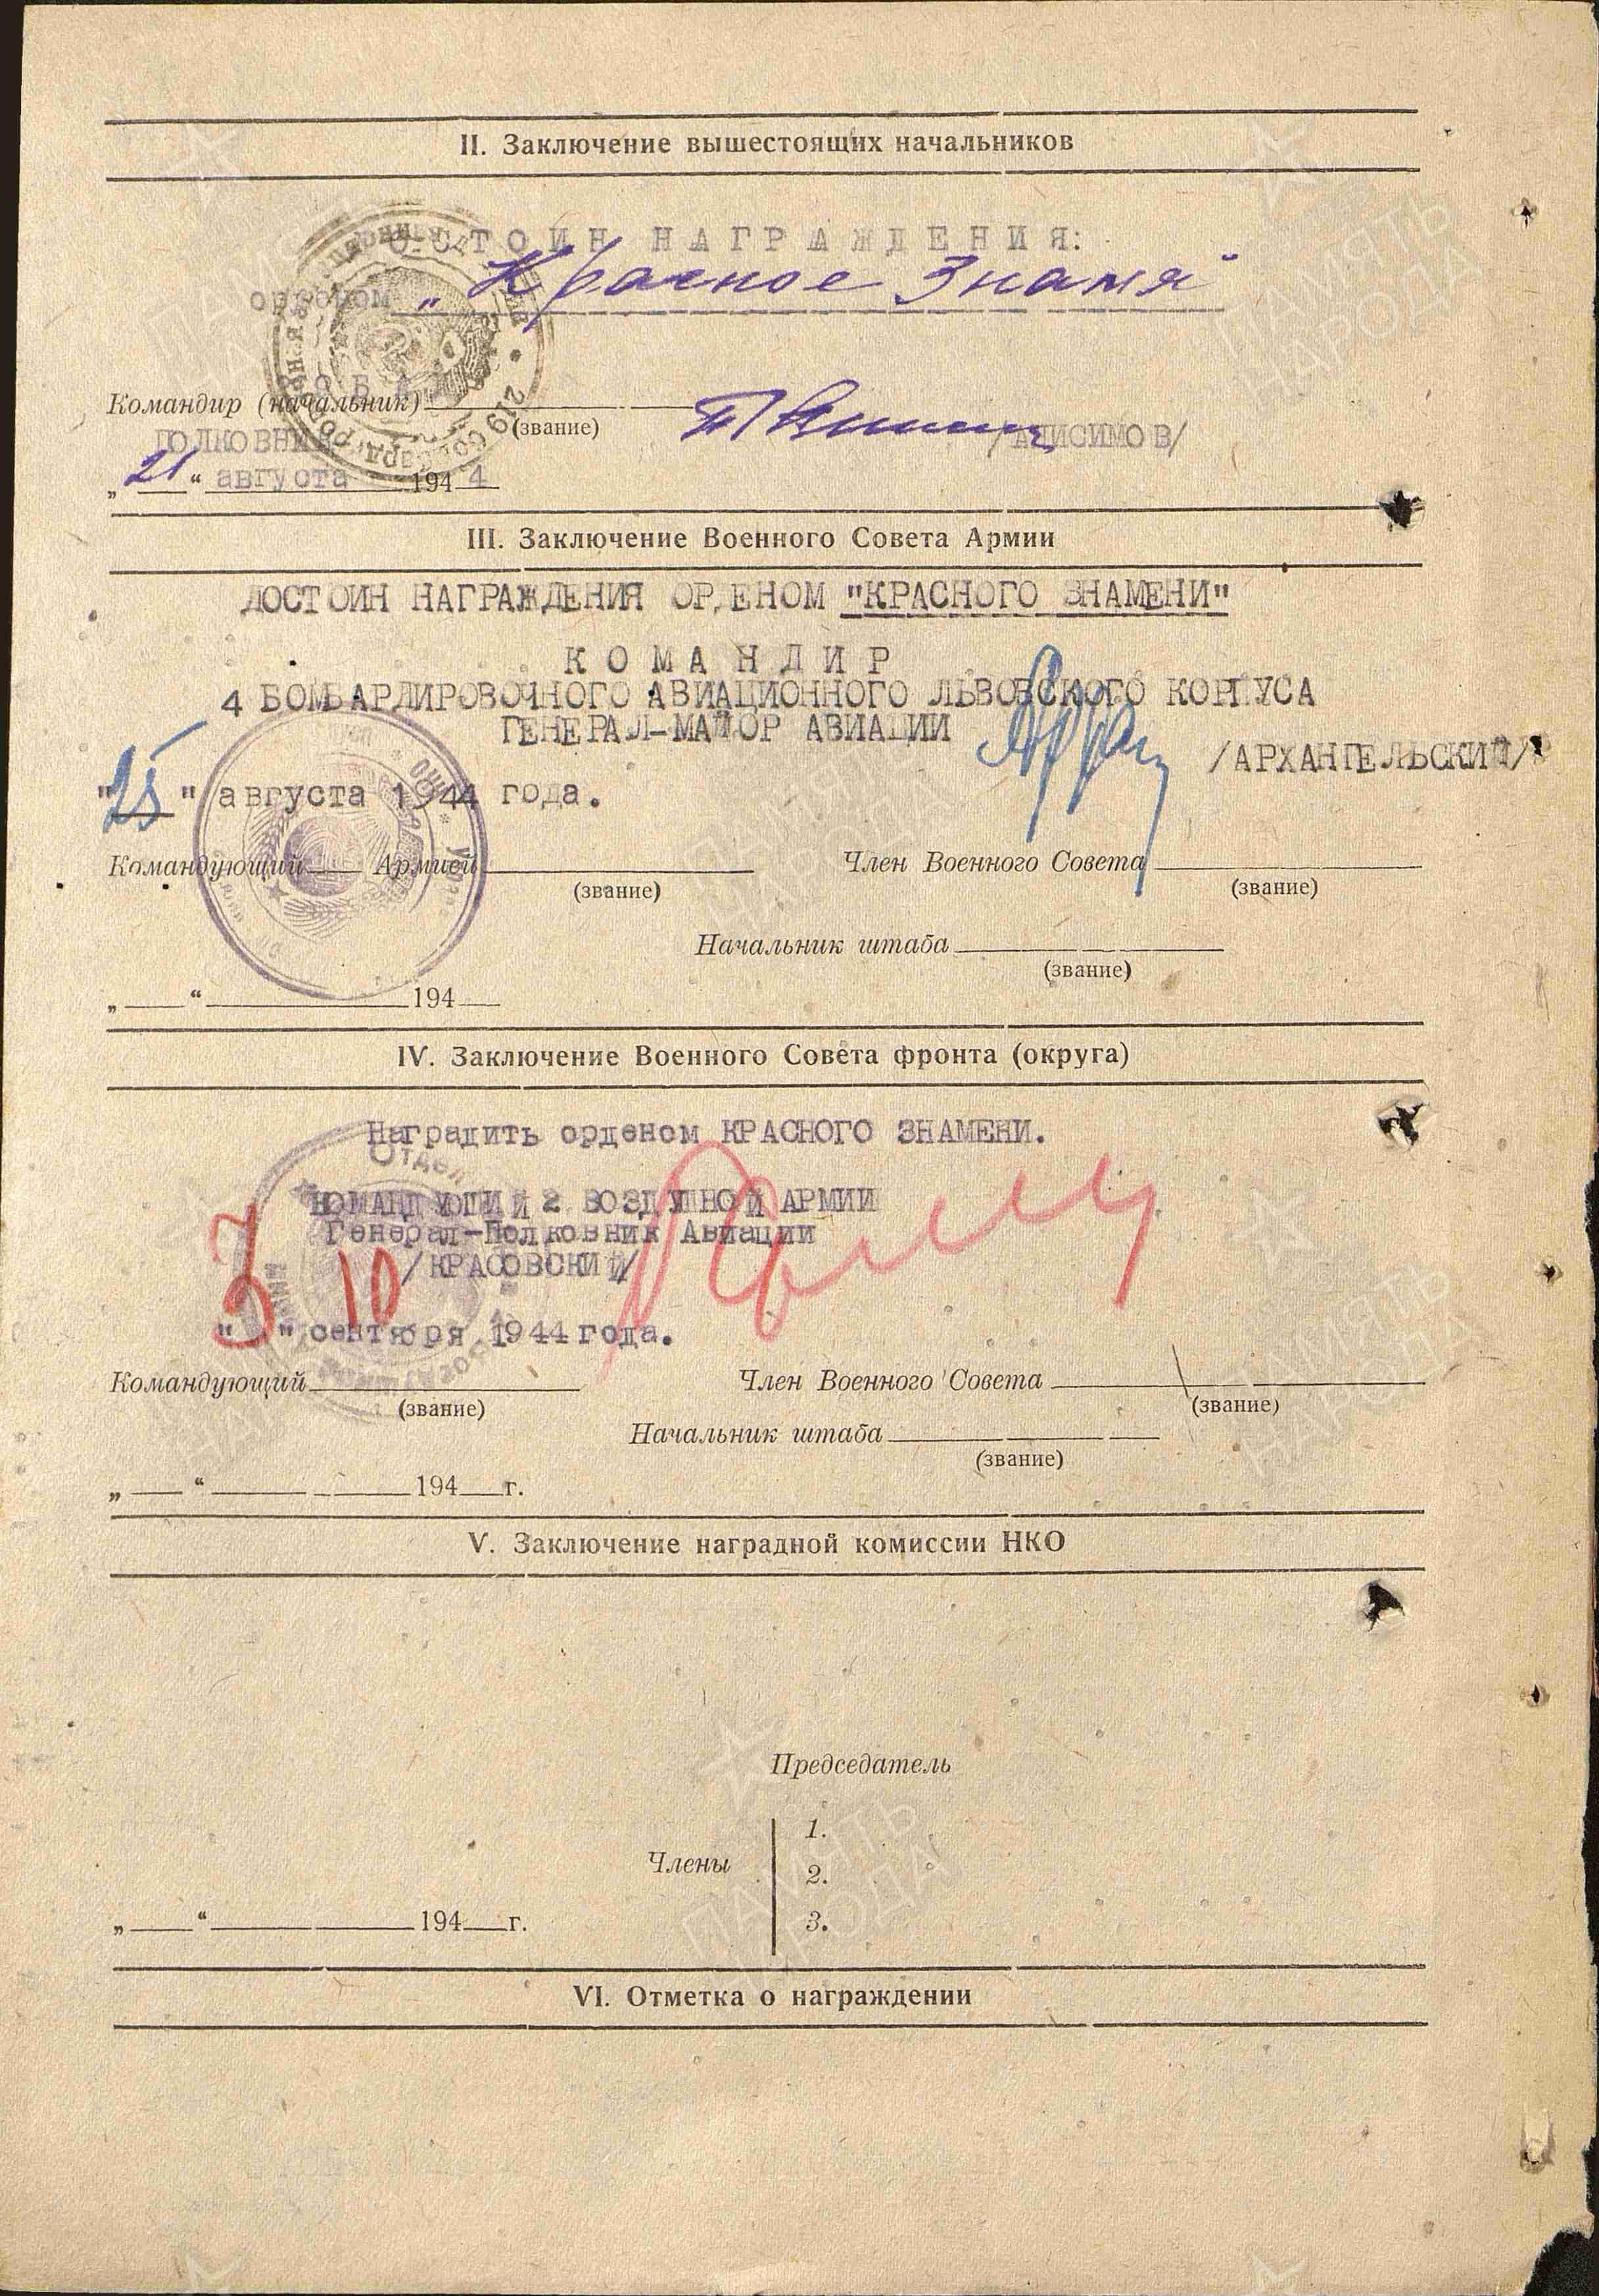 II. Заключение вышестоящих начальников
ОСТОИН НАГРАЖДЕНИЯ:
орденом „Красное Знамя"
Командир (начальник)
(звание)
ПОЛКОВНИК /АНИСИМОВ/
„21“ августа 1944
III. Заключение Военного Совета Армии
ДОСТОИН НАГРАЖДЕНИЯ ОРДЕНОМ "КРАСНОГО ЗНАМЕНИ"
КОМАНДИР
4 БОМБАРДИРОВОЧНОГО АВИАЦИОННОГО ЛЬВОВСКОГО КОРПУСА
ГЕНЕРАЛ-МАЙОР АВИАЦИИ
/АРХАНГЕЛЬСКИЙ/
"25" августа 1944 года.
Командующий Армией Член Военного Совета
(звание) (звание)
Начальник штаба
(звание)
„ “ 194
IV. Заключение Военного Совета фронта (округа)
Наградить орденом КРАСНОГО ЗНАМЕНИ.
КОМАНДУЮЩИЙ 2 ВОЗДУШНОЙ АРМИИ
Генерал-Полковник Авиации
/КРАСОВСКИЙ/
3 10
" " сентября 1944 года.
Командующий Член Военного Совета
(звание) (звание)
Начальник штаба
(звание)
„ “ 194 г.
V. Заключение наградной комиссии НКО
Председатель
1.
Члены
2.
3.
„ “ 194 г.
VI. Отметка о награждении
ПАМЯТЬ НАРОДА